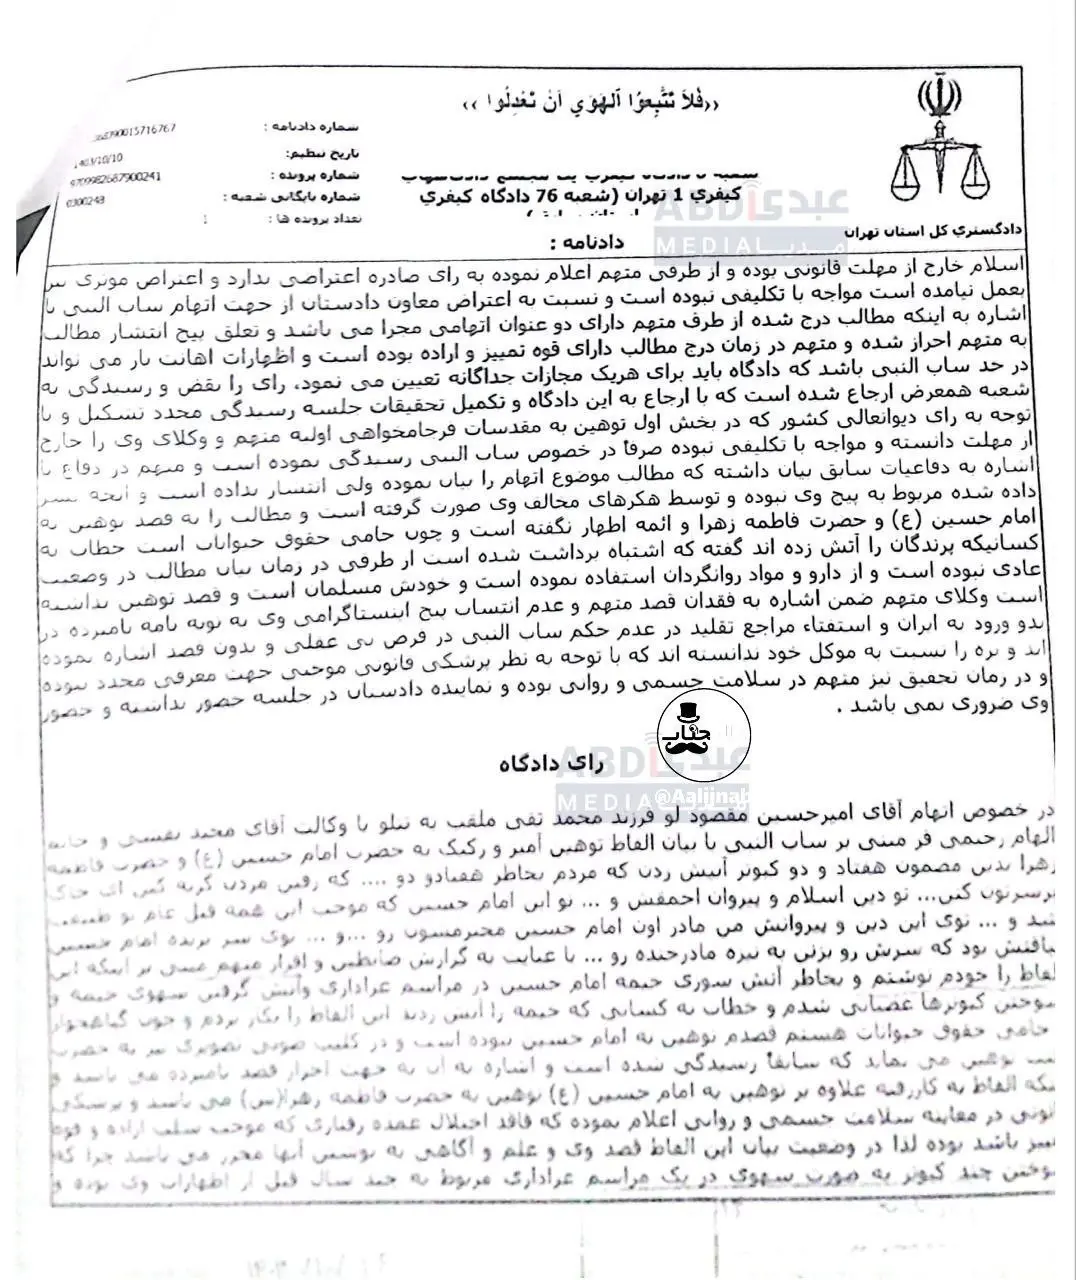 ‹‹فَلاَ تَتَّبِعُوا الْهَوَي اَنْ تَعْدِلُوا››
شماره دادنامه : 90015716767
تاریخ تنظیم: 1403/10/10
شماره پرونده : 9709982687900241
شماره بایگانی شعبه : 0300248
تعداد پرونده ها : 1
کیفری 1 تهران (شعبه 76 دادگاه کیفری
دادگستری کل استان تهران
ABDI عبدی
MEDIA مدیا
دادنامه :
اسلام خارج از مهلت قانونی بوده و از طرفی متهم اعلام نموده به رای صادره اعتراضی ندارد و اعتراض موثری نیز
بعمل نیامده است مواجه با تکلیفی نبوده است و نسبت به اعتراض معاون دادستان از جهت اتهام ساب النبی با
اشاره به اینکه مطالب درج شده از طرف متهم دارای دو عنوان اتهامی مجزا می باشد و تعلق پیج انتشار مطالب
به متهم احراز شده و متهم در زمان درج مطالب دارای قوه تمییز و اراده بوده است و اظهارات اهانت بار می تواند
در حد ساب النبی باشد که دادگاه باید برای هریک مجازات جداگانه تعیین می نمود، رای را نقض و رسیدگی به
شعبه همعرض ارجاع شده است که با ارجاع به این دادگاه و تکمیل تحقیقات جلسه رسیدگی مجدد تشکیل و با
توجه به رای دیوانعالی کشور که در بخش اول توهین به مقدسات فرجامخواهی اولیه متهم و وکلای وی را خارج
از مهلت دانسته و مواجه با تکلیفی نبوده صرفا در خصوص ساب النبی رسیدگی نموده است و متهم در دفاع با
اشاره به دفاعیات سابق بیان داشته که مطالب موضوع اتهام را بیان نموده ولی انتشار نداده است و آنچه نشر
داده شده مربوط به پیج وی نبوده و توسط هکرهای مخالف وی صورت گرفته است و مطالب را به قصد توهین به
امام حسین (ع) و حضرت فاطمه زهرا و ائمه اظهار نگفته است و چون حامی حقوق حیوانات است خطاب به
کسانیکه پرندگان را آتش زده اند گفته که اشتباه برداشت شده است از طرفی در زمان بیان مطالب در وضعیت
عادی نبوده است و از دارو و مواد روانگردان استفاده نموده است و خودش مسلمان است و قصد توهین نداشته
است وکلای متهم ضمن اشاره به فقدان قصد متهم و عدم انتساب پیج اینستاگرامی وی به توبه نامه نامبرده در
بدو ورود به ایران و استفتاء مراجع تقلید در عدم حکم ساب النبی در فرض بی عقلی و بدون قصد اشاره نموده
اند و بزه را نسبت به موکل خود ندانسته اند که با توجه به نظر پزشکی قانونی موجبی جهت معرفی مجدد نبوده
و در زمان تحقیق نیز متهم در سلامت جسمی و روانی بوده و نماینده دادستان در جلسه حضور نداشته و حضور
وی ضروری نمی باشد .
جناب
@Aalijnab
ABDI عبدی
MEDIA مدیا
رای دادگاه
در خصوص اتهام آقای امیرحسین مقصود لو فرزند محمد تقی ملقب به تتلو با وکالت آقای مجید نقشی و خانم
الهام رحیمی فر مبنی بر ساب النبی با بیان الفاظ توهین آمیز و رکیک به حضرت امام حسین (ع) و حضرت فاطمه
زهرا بدین مضمون هفتاد و دو کبوتر آتیش زدن که مردم بخاطر هفتادو دو .... که رفتن مردن گریه کنن ای خاک
برسرتون کنن... تو دین اسلام و پیروان احمقش و ... تو این امام حسین که موجب این همه قتل عام تو طبیعت
شد و ... توی این دین و پیروانش من مادر اون امام حسین محترمتون رو ...و ... توی سر بریده امام حسین
یاقتش بود که سرش رو بزنن به نیزه مادرجنده رو ... با عنایت به گزارش ضابطین و اقرار متهم مبنی بر اینکه این
لفاظ را خودم نوشتم و بخاطر آتش سوزی خیمه امام حسین در مراسم عزاداری وآتش گرفتن سهوی خیمه و
سوختن کبوترها عصبانی شدم و خطاب به کسانی که خیمه را آتش زدند این الفاظ را بکار بردم و چون گیاهخوار
حامی حقوق حیوانات هستم قصدم توهین به امام حسین نبوده است و در کلیپ صوتی تصویری نیز به حضرت
توهین می نماید که سابقا رسیدگی شده است و اشاره به آن به جهت احراز قصد نامبرده می باشد و
ینکه الفاظ به کاررفته علاوه بر توهین به امام حسین (ع) توهین به حضرت فاطمه زهرا(س) می باشد و پزشکی
انونی در معاینه سلامت جسمی و روانی اعلام نموده که فاقد اختلال عمده رفتاری که موجب سلب اراده و قوه
مییز باشد بوده لذا در وضعیت بیان این الفاظ قصد وی و علم و آگاهی به نوشتن آنها محرز می باشد چرا که
سوختن چند کبوتر به صورت سهوی در یک مراسم عزاداری مربوط به چند سال قبل از اظهارات وی بوده و